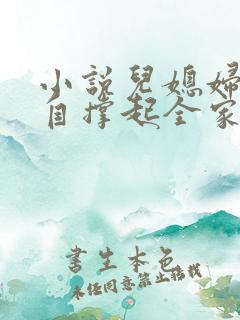 小說兒媳婦
自撑起全家
書生本色
未经同意禁止搭我